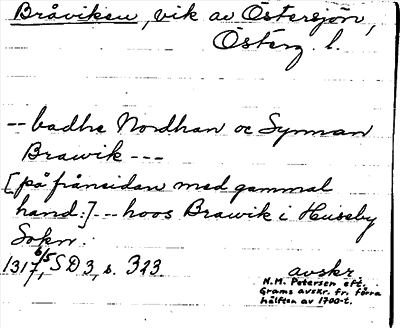 Bråviken, vik av Östersjön,
Österg. l.
-- badhe Nordhan oc Synnan
Brawik ---
[på frånsidan med gammal
hand:] --- hoos Brawik i Huseby
Sokn.
1317 6/5, SD 3, s. 323.
avskr.
N.M. Petersen eft.
Grams avskr. fr. förra
hälften av 1700-t.